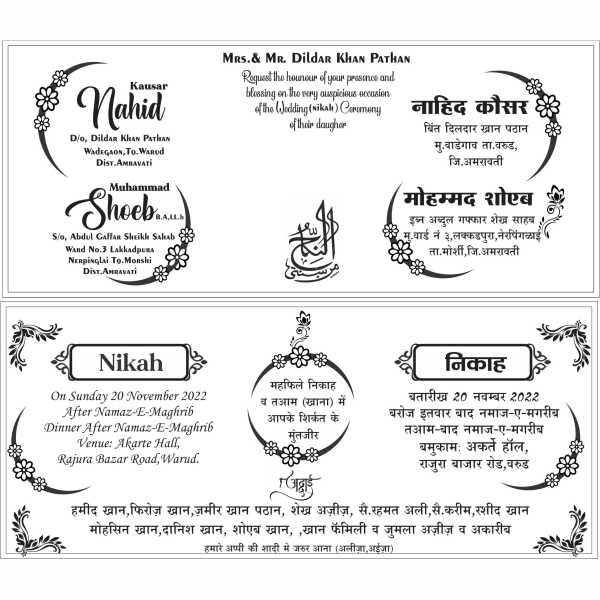 Mrs.& Mr. Dildar Khan Pathan
Request the hounour of your presence and
blessing on the very auspicious occasion
of the Wedding (nikah) Ceremony
of their daugher
Kausar
Nahid
D/o, Dildar Khan Pathan
Wadegaon,To.Warud
Dist.Amravati
नाहिद कौसर
बिंत दिलदार खान पठान
मु.वाडेगाव ता.वरुड,
जि.अमरावती
Muhammad
Shoeb B.A,LL.b
S/o, Abdul Gaffar Sheikh Sahab
Ward No.3 Lakkadpura
Nerpinglai To.Morshi
Dist.Amravati
النكاح من سنتي
मोहम्मद शोएब
इब्न अब्दुल गफ्फार शेख साहब
मु.वार्ड नं ३,लक्कडपुरा,नेरपिंगळाई
ता.मोर्शी,जि.अमरावती
Nikah
On Sunday 20 November 2022
After Namaz-E-Maghrib
Dinner After Namaz-E-Maghrib
Venue: Akarte Hall,
Rajura Bazar Road,Warud.
महफिले निकाह
व तआम (खाना) में
आपके शिर्कत के
मुंतजीर
निकाह
बतारीख 20 नवम्बर 2022
बरोज इतवार बाद नमाज-ए-मगरीब
तआम-बाद नमाज-ए-मगरीब
बमुकाम: अकर्ते हॉल,
राजुरा बाजार रोड,वरुड
हमीद खान,फिरोज़ खान,ज़मीर खान पठान, शेख अज़ीज़, सै.रहमत अली,सै.करीम,रशीद खान
मोहसिन खान,दानिश खान, शोएब खान, ,खान फॅमिली व जुमला अज़ीज़ व अकारीब
हमारे अप्पी की शादी मे जरुर आना (अलीज़ा,अईज़ा)